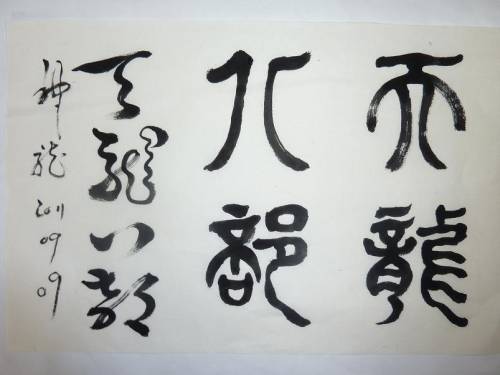 天龍
八部
天龍八部
神龍 训 09 09